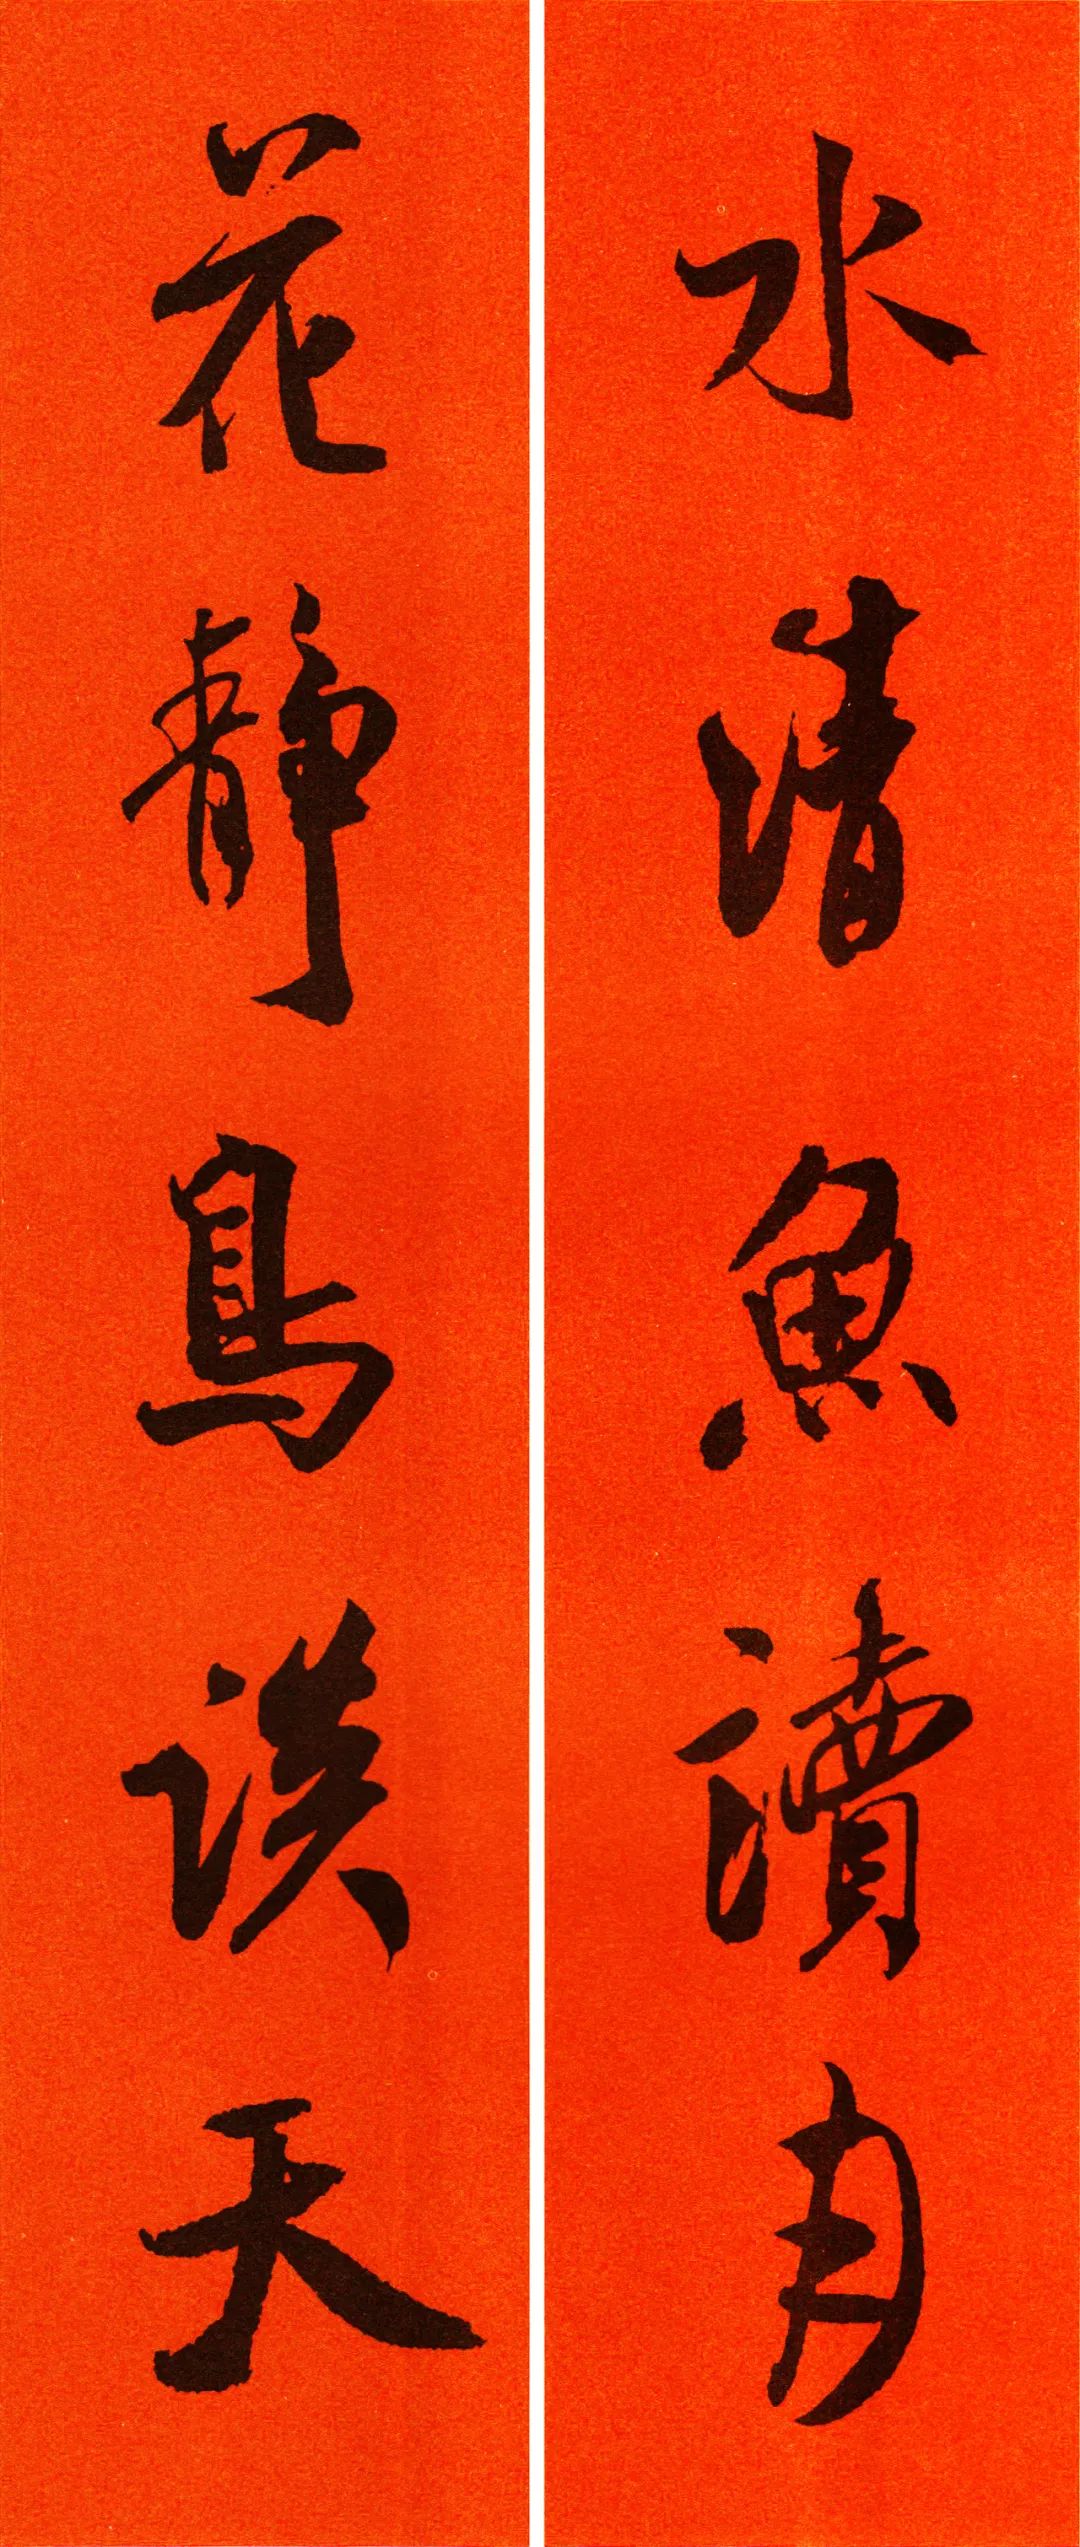 水清魚讀月
花靜鳥談天